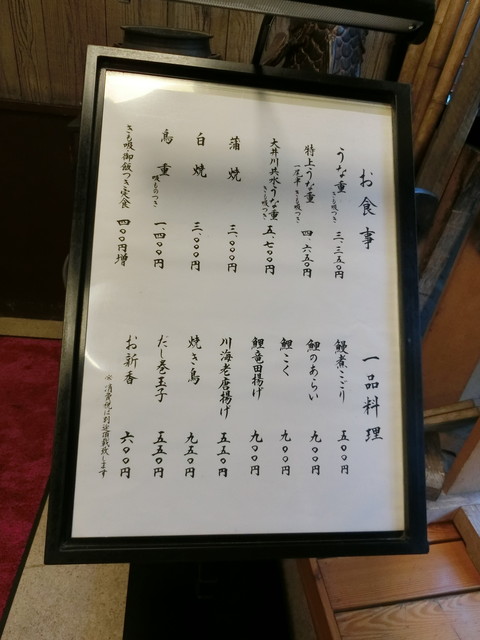 お食事
うな重 きも吸つき 三、三五〇円
特上うな重 一尾半 きも吸つき 四、六五〇円
大井川共水うな重 きも吸つき 五、七〇〇円
蒲焼 三、〇〇〇円
白焼 三、〇〇〇円
鳥重 吸ものつき 一、四〇〇円
きも吸・御飯つき定食 四〇〇円増
一品料理
鰻煮こごり 五〇〇円
鯉のあらい 九〇〇円
鯉こく 九〇〇円
鯉竜田揚げ 九〇〇円
川海老唐揚げ 五五〇円
焼き鳥 九五〇円
だし巻玉子 五五〇円
お新香 六〇〇円
※消費税は別途頂戴致します